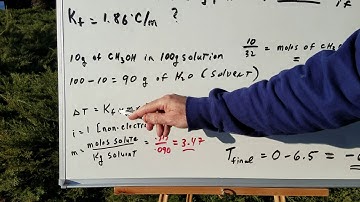 if
Kf = 1.86 °C/m ?
10g of CH3OH in 100g solution
10/32 = moles of CH3OH
=
100-10 = 90 g of H2O (solvent)
ΔT = Kf
i = 1 [non-electro
m = moles solute / Kg solvent = / .090 = 3.47
Tfinal = 0 - 6.5 = -6